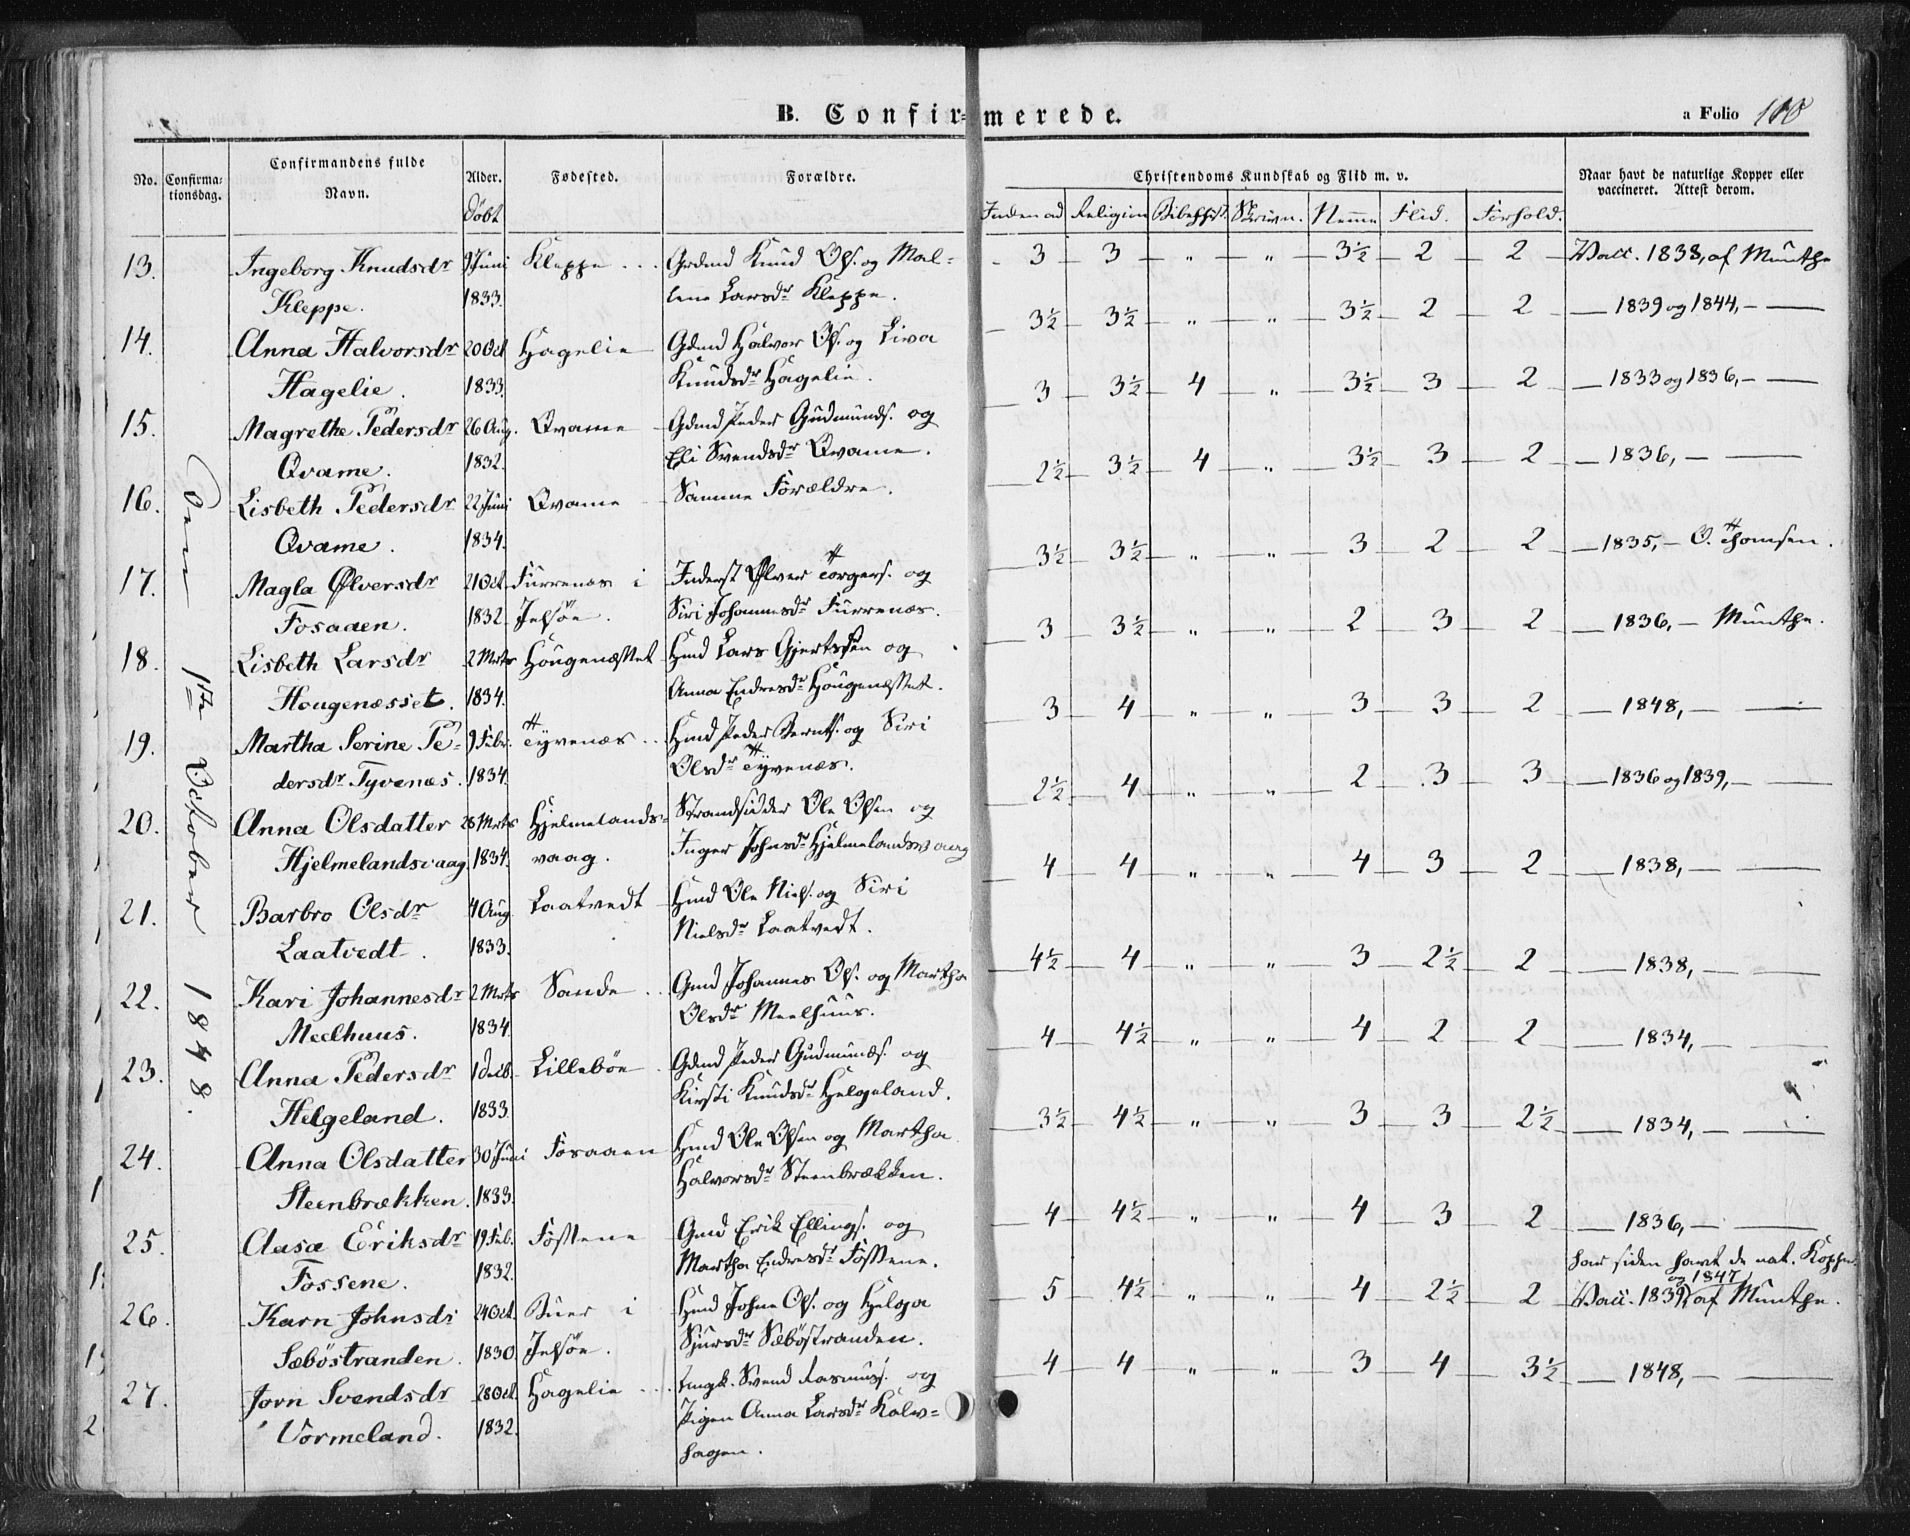 B. Confirmerede.
a Folio 108
No. Confirma-tionsdag. Confirmandens fulde Navn. Alder. Døbt Fødested. Forældre. Christendoms Kundskab og Flid m. v. Naar havt de naturlige Kopper eller vaccineret. Attest derom.
Religion Skrivn. Nemme Flid. Forhold.
Den 1ste October 1848.
13. Ingeborg Knudsdr 9 Juni Kleppe Grdmd Knud Ols. og Mal- 3 3 " " 3½ 2 2 Vacc. 1838, af Munthe
Kleppe. 1833. lene Larsdr Kleppe.
14. Anna Halvorsdr 20 Oct Hagelie Gdmd Halvor Ols. og Siva 3½ 3½ " " 3½ 2 2 1839 og 1844,
Hagelie. 1833. Knudsdr Hagelie.
15. Magrethe Pedersdr 26 Aug. Qvame Gdmd Peder Gudmunds. og 3 3½ 4 " 3½ 3 2 1833 og 1836,
Qvame. 1832. Eli Svendsdr Qvame.
16. Lisbeth Pedersdr 22 Juni Qvame Samme Forældre. 2½ 3½ 4 " 3½ 3 2 1836,
Qvame. 1834.
17. Magla Ølversdr 21 Oct. Furrenæs i Inderst Ølver Torgers. og 3½ 3½ " " 3 2 2 1835, O. Thomsen.
Fosaaen. 1832 Jelsøe. Siri Johannesdr Furrenæs.
18. Lisbeth Larsdr 2 Mrts Hougenæsset Hmd Lars Gjertssen og 3 3½ " " 2 3 2 1836, Munthe.
Hougenæsset. 1834. Anna Endresdr Hougenæsset.
19. Martha Serine Pe- 9 Febr. Tyvenæs Hmd Peder Bernts. og Siri 3 4 " " 3 3 2 1848,
dersdr Tyvenæs. 1834. Olsdr Tyvenæs.
20. Anna Olsdatter 28 Mrts Hjelmelands- Strandsidder Ole Olsen og 2½ 4 " " 2 3 3 1836 og 1839,
Hjelmelandsvaag. 1834. vaag. Inger Johnsdr Hjelmelandsvaag
21. Barbro Olsdr 4 Aug. Laatvedt Hmd Ole Niels. og Siri 4 4 " " 4 3 2 1838,
Laatvedt. 1833. Nielsdr Laatvedt.
22. Kari Johannesdr 2 Mrts Sande Gmd Johannes Ols. og Martha 4½ 4 " " 3 2½ 2 1838,
Meelhuus. 1834. Olsdr Meelhuus.
23. Anna Pedersdr 1 Decb. Lillebøe Gdmd Peder Gudmunds. og 4 4½ " " 4 2 2 1834,
Helgeland. 1833. Kirsti Knudsdr Helgeland.
24. Anna Olsdatter 30 Juni Fosaaen Hmd Ole Olsen og Martha 3½ 4½ " " 3 3 2½ 1834,
Steenbrækken. 1833. Halvorsdr Steenbrækken.
25. Aasa Eriksdr 19 Feb. Fossene Gmd Erik Ellings. og 4 4½ " " 4 3 2 1836,
Fossene. 1832. Martha Endresdr Fossene. har siden havt de nat. Kopper.
26. Karn Johnsdr 24 Oct. Buer i Hmd Johne Ols. og Helga 5 4½ " " 4 2½ 2 Vacc. 1839 og 1847 af Munthe.
Sæbøstranden. 1830. Jelsøe. Sjursdr Sæbøstranden.
27. Jorn Svendsdr 28 Oct. Hagelie Ungk. Svend Rasmuss. og 4 4 " " 3 4 3½ 1848,
Vormeland. 1832. Pigen Anna Larsdr Kalv-
hagen.